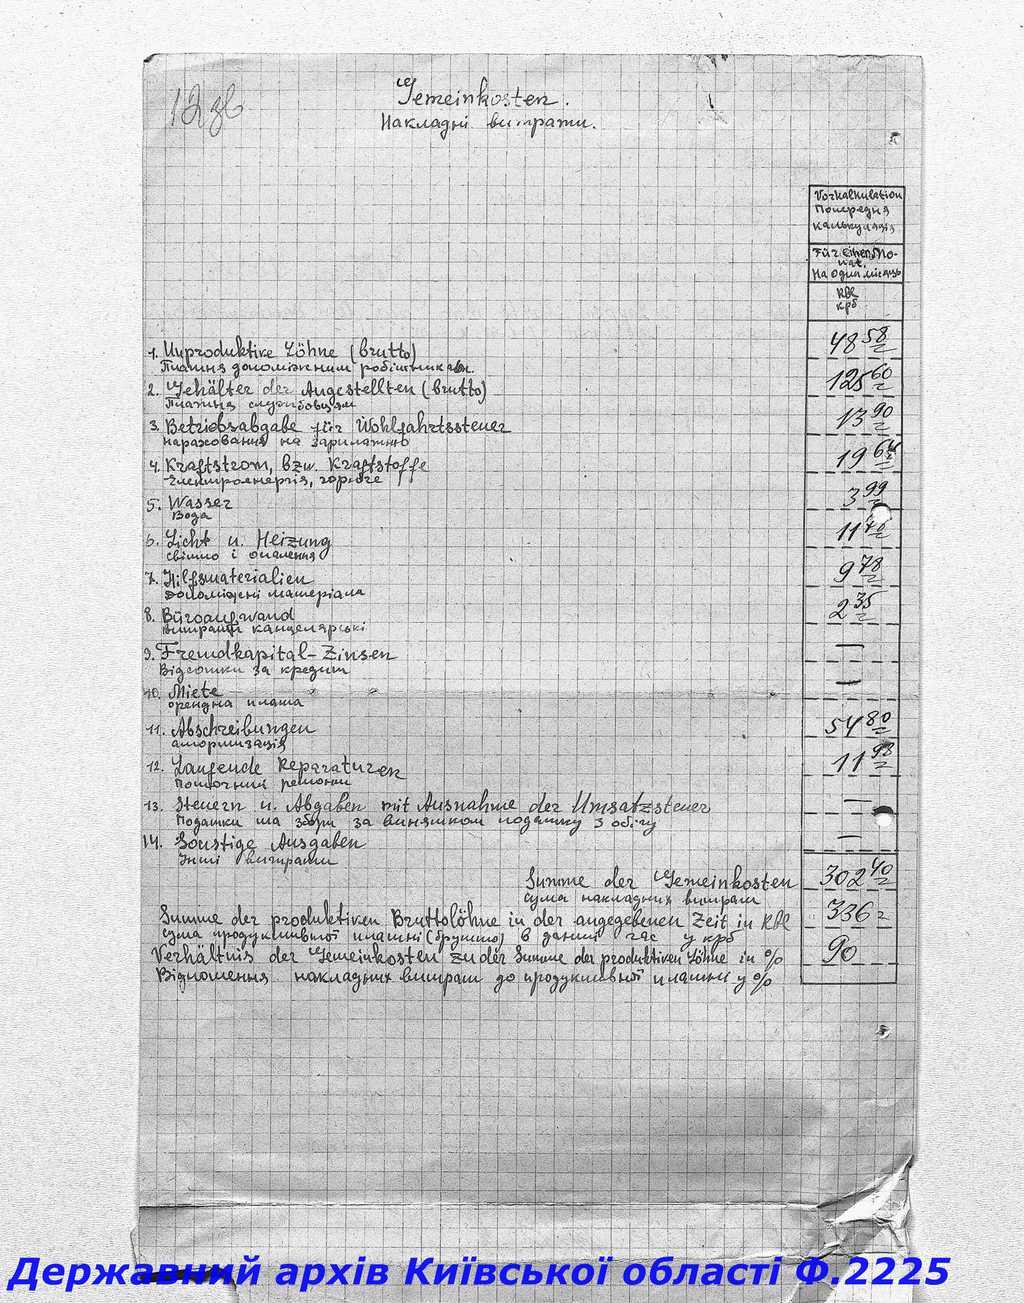 12зв
Gemeinkosten.
Накладні витрати.
Vorkalkulation
Попередня
калькуляція
Für einen Mo-
nat.
На один місяць
Kbl
крб
1. Unproduktive Löhne (brutto) 48 58
Платня допоміжним робітникам
2. Gehälter der Angestellten (brutto) 125 60
Платня службовцям
3. Betriebsabgabe für Wohlfahrtssteuer 13 90
нарахования на зарплатню
4. Kraftstrom, bzw. Kraftstoffe 19 64
електроенергія, горюче
5. Wasser 3 99
Вода
6. Licht u. Heizung 11
світло і опалення
7. Hilfsmaterialien 9 78
допоміжні матеріали
8. Büroaufwand 2 35
витрати канцелярські
9. Fremdkapital-Zinsen —
Відсотки за кредит
10. Miete —
орендна плата
11. Abschreibungen 54 80
амортизація
12. Laufende Reparaturen 11 98
поточний ремонт
13. Steuern u. Abgaben mit Ausnahme der Umsatzsteuer —
Податки та збори за винятком податку з обігу
14. Sonstige Ausgaben —
інші витрати
Summe der Gemeinkosten 302 40
сума накладних витрат
Summe der produktiven Bruttolöhne in der angegebenen Zeit in Kbl 336
сума продуктивної платні (брутто) в даний час у крб
Verhältnis der Gemeinkosten zu der Summe der produktiven Löhne in % 90
Відношення накладних витрат до продуктивної платні у %
Державний архів Київської області Ф.2225